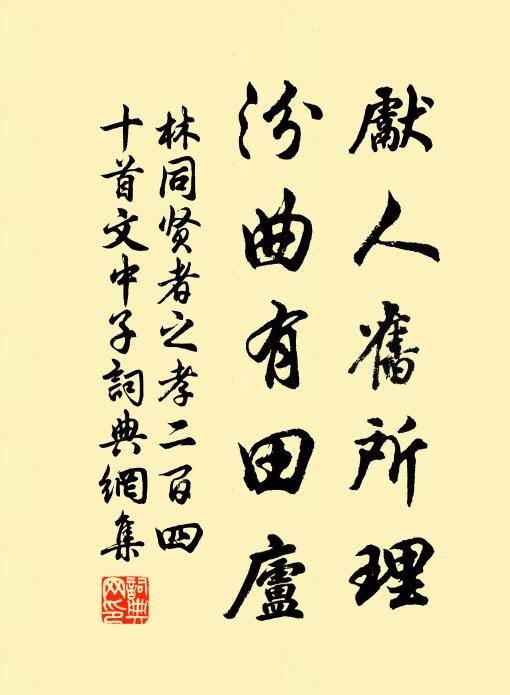 獻人舊所理
汾曲有田廬
林同贤者之孝二百四
十首文中子詞典網集